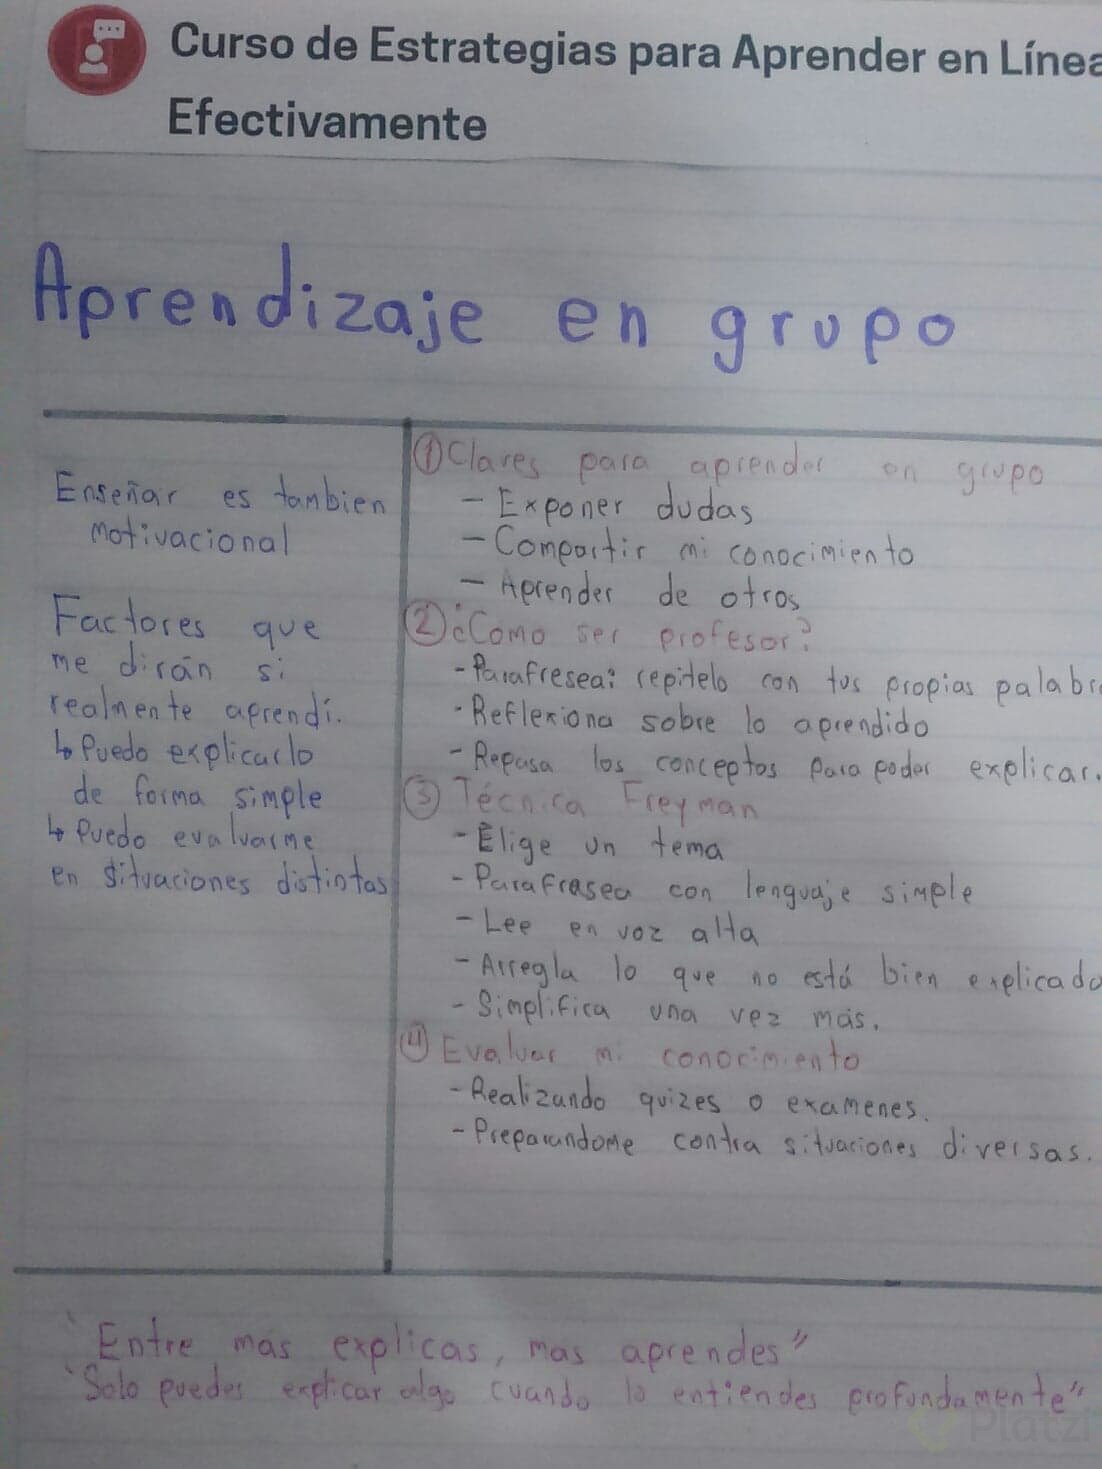 Curso de Estrategias para Aprender en Línea
Efectivamente
Aprendizaje en grupo
Enseñar es tambien
motivacional
Factores que
me dirán si
realmente aprendí.
↳ Puedo explicarlo
de forma simple
↳ Puedo evaluarme
en situaciones distintas
① Claves para aprender en grupo
- Exponer dudas
- Compartir mi conocimiento
- Aprender de otros
② ¿Como ser profesor?
- Parafresea: repitelo con tus propias palabr
- Reflexiona sobre lo aprendido
- Repasa los conceptos para poder explicar.
③ Técnica Freyman
- Elige un tema
- Parafrasea con lenguaje simple
- Lee en voz alta
- Arregla lo que no está bien explicado
- Simplifica una vez más.
④ Evaluar mi conocimiento
- Realizando quizes o examenes.
- Preparandome contra situaciones diversas.
"Entre mas explicas, mas aprendes"
"Solo puedes explicar algo cuando lo entiendes profundamente"
Platzi